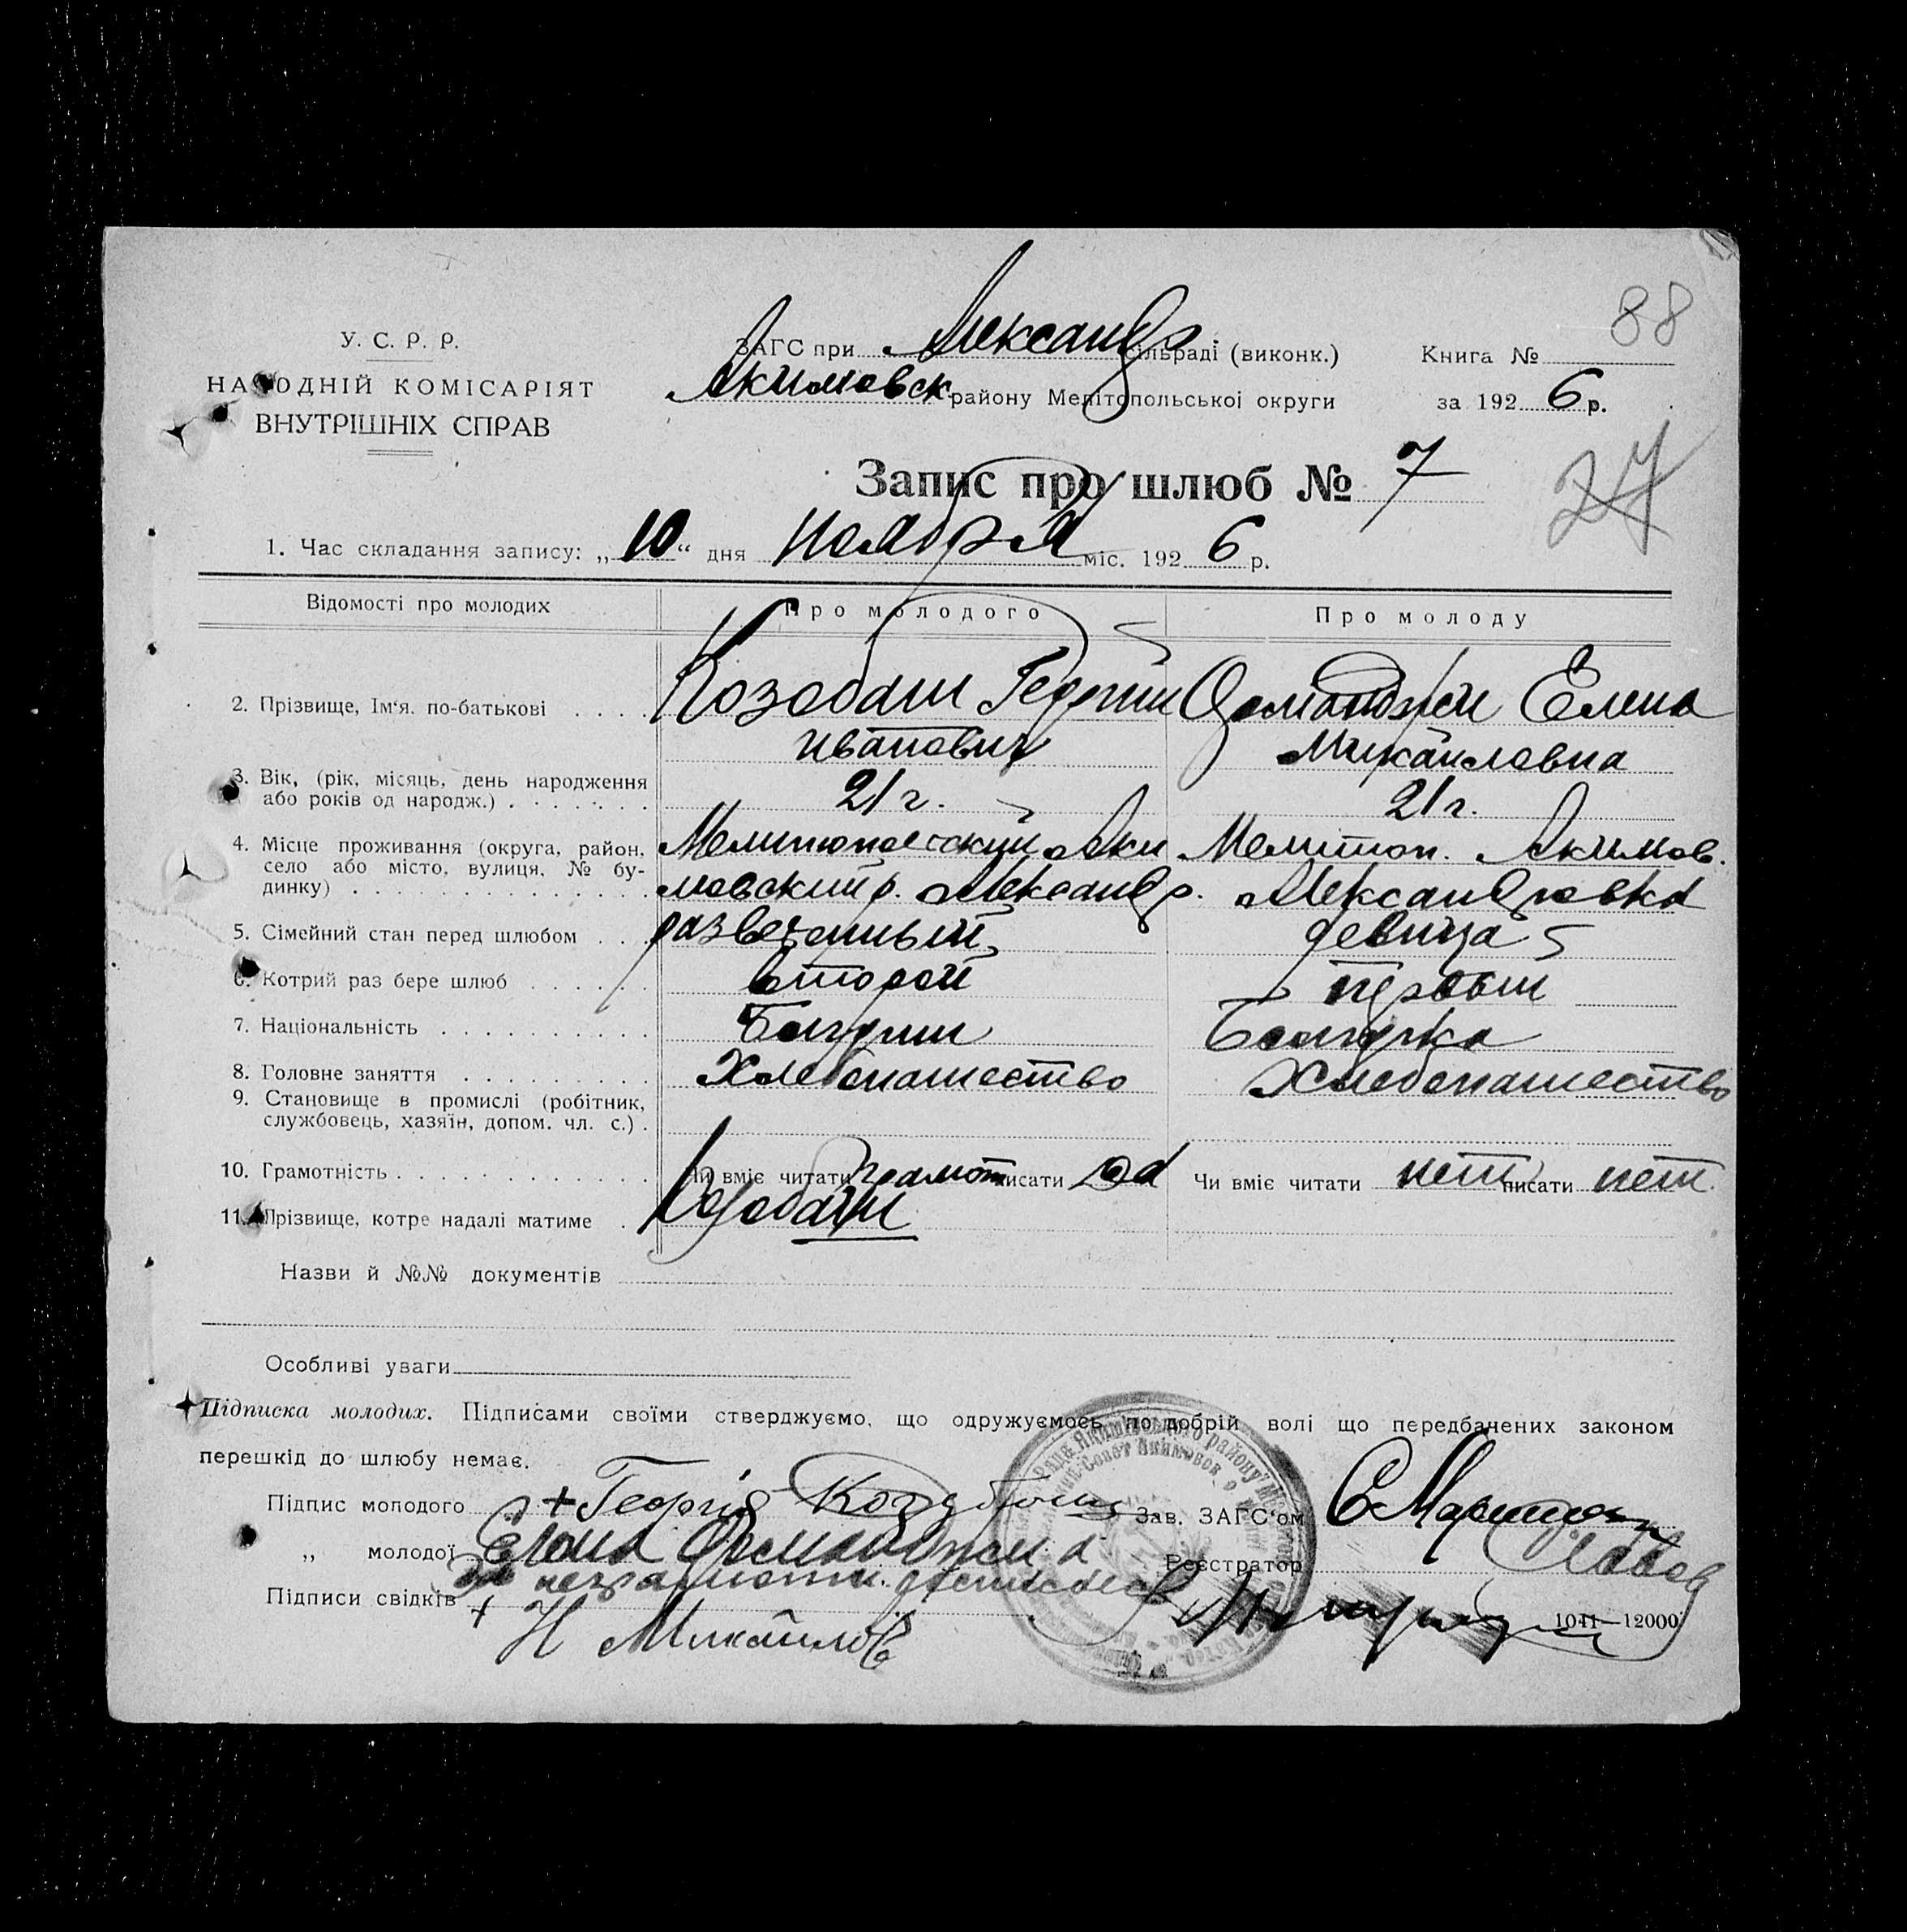 88
У. С. Р. Р.
НАРОДНІЙ КОМІСАРІЯТ
ВНУТРІШНІХ СПРАВ
ЗАГС при Александр. сільраді (виконк.)
Акимовск. району Мелітопольської округи
Книга №
за 192 6 р.
Запис про шлюб № 7
27
1. Час складання запису: „10“ дня ноября міс. 192 6 р.
Відомості про молодих
Про молодого
Про молоду
2. Прізвище, Ім'я. по-батькові
Козобаш Георгий
Иванович
Османджи Елена
Михайловна
3. Вік, (рік, місяць, день народження
або років од народж.)
21 г.
21 г.
4. Місце проживання (округа, район,
село або місто, вулиця, № бу-
динку)
Мелитопольский Аки
мовский р. Александр.
Мелитоп. Акимов.
Александровка
5. Сімейний стан перед шлюбом
разведенный
девица
6. Котрий раз бере шлюб
второй
первый
7. Національність
Болгарин
Болгарка
8. Головне заняття
Хлебопашество
Хлебопашество
9. Становище в промислі (робітник,
службовець, хазяїн, допом. чл. с.)
10. Грамотність
Чи вміє читати грамот писати
Чи вміє читати нет писати нет
11. Прізвище, котре надалі матиме
Козобаш
Назви й №№ документів
Особливі уваги
Підписка молодих. Підписами своїми стверджуємо, що одружуємось по добрій волі що передбачених законом
перешкід до шлюбу немає.
Підпис молодого + Георгий
Зав. ЗАГС'ом
„ молодої Елена Османджи
Реєстратор
Підписи свідків
1041—12000
Н Михайлов